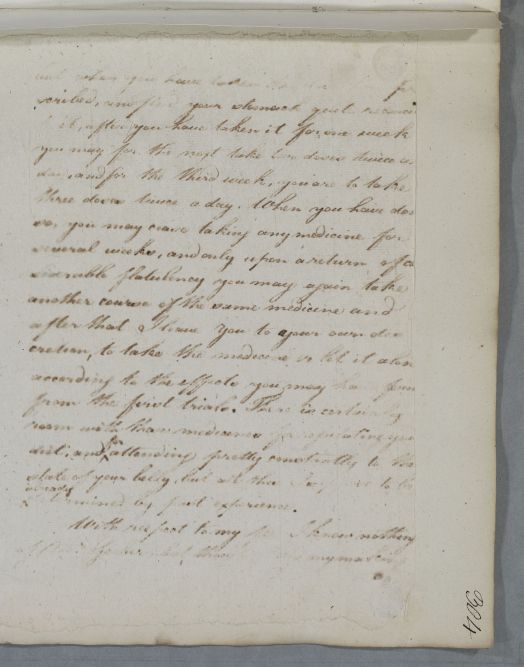 but when you have taken
scribed, and find your stomach quite reconcil
it, after you have taken it for one week
you may for the next take two doses twice a
day, and for the third week, you are to take
three doses twice a day. When you have don
so, you may leave taking any medicine for
several weeks, and only upon a return of co
siderable flatulency you may again take
another course of the same medicine and
after that I leave you to your own dis
cretion, to take the medicine or let it alon
according to the effects you may have foun
from the first trials. There is certainly
room with these medicines for regulating your
diet, and for attending pretty constantly to the
state of your belly, but all this
determined by past experience.
With respect to my I know nothing
my
4106